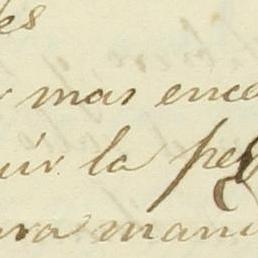 es
mas ence
uir la pe
ra mani